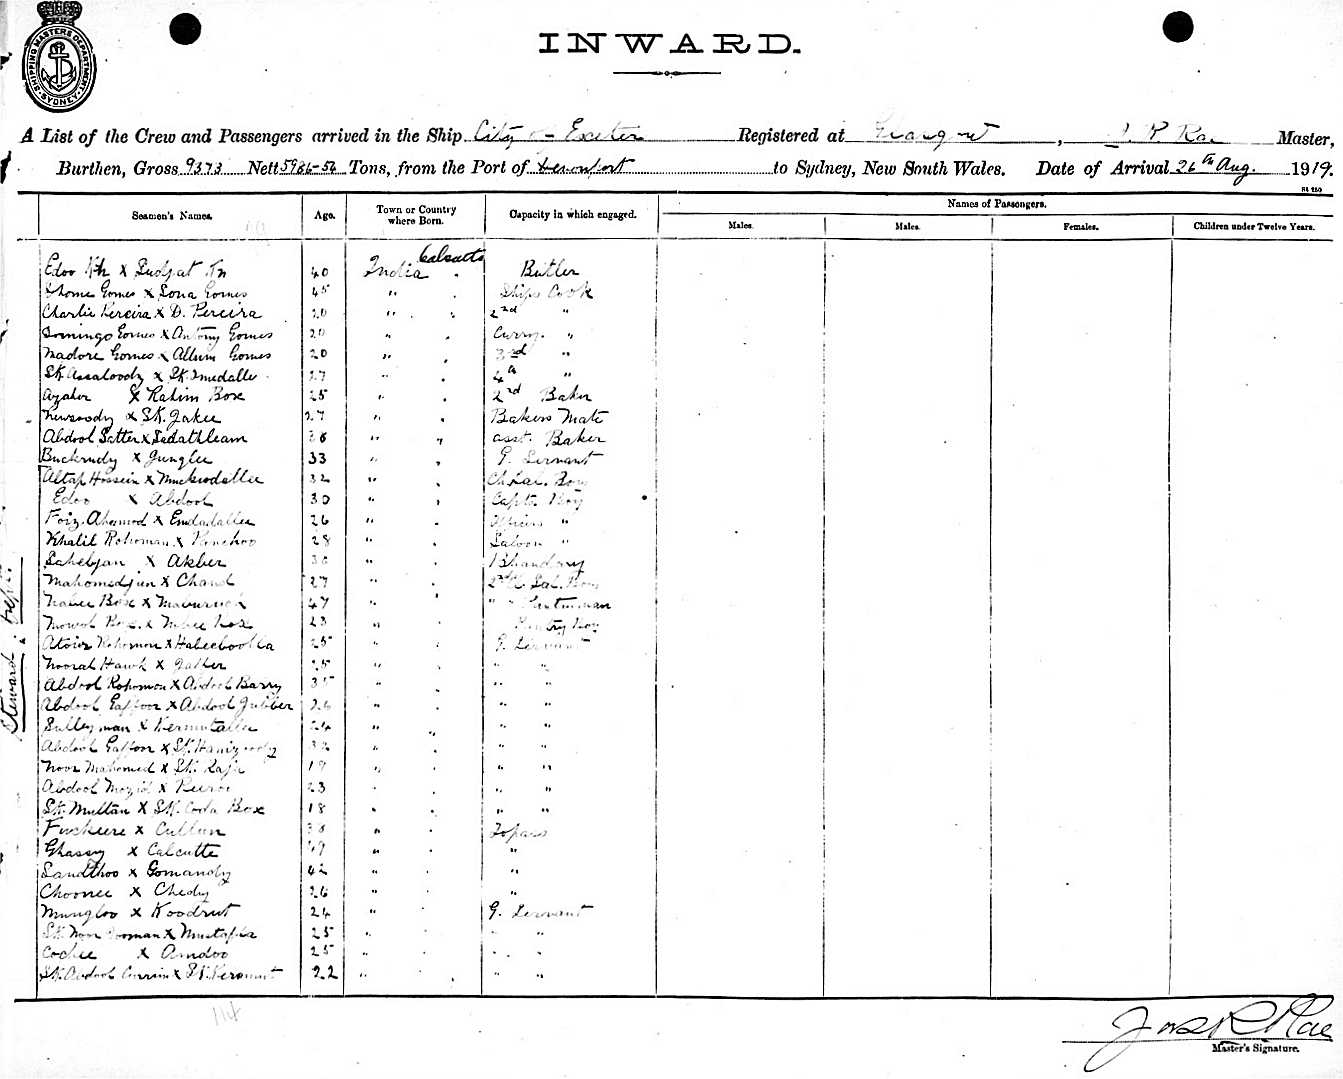 SHIPPING MASTERS DEPARTMENT. SYDNEY.
INWARD.
A List of the Crew and Passengers arrived in the Ship City of Exeter Registered at Glasgow, J. R. Rae Master,
Burthen, Gross 9373 Nett 5986-54 Tons, from the Port of Devonport to Sydney, New South Wales. Date of Arrival 26th Aug. 1919.
Seamen's Names. Age. Town or Country where Born. Capacity in which engaged. Names of Passengers.
Males. Males. Females. Children under Twelve Years.
Calcutta
Edoo Kh x 40 India " Butler
Thome Gomes x Sona Gomes 45 " " Ships Cook
Charlie Pereira x D. Pereira 20 " " 2nd "
Domingo Gomes x Antony Gomes 20 " " Curry "
Madore Gomes x Allum Gomes 20 " " 3rd "
SK. Assaloody x SK. 27 " " 4th "
x Rahim Box 25 " " 2nd Baker
x SK. Jakee 27 " " Bakers Mate
Abdool Satter x Sadathleam 28 " " asst. Baker
Buckrudy x Junglee 33 " " G. Servant
Altap Hossein x 32 " " Boy
Edoo x Abdool 30 " " Capts. Boy
Foiz. Ahamod x Emdadallee 26 " " Officers "
Khalil Rohoman x 28 " " Saloon "
Sahebjan x Akber " " Bhandary
Mahomedjan x Chand 27 " " 2nd Cl. Sal. Boy
Nabee Box x 47 " " " " Pantryman
Mowol Box x Nabee Box 23 " " Pantry Boy
Rohomon x Habeeboolla 25 " " G. Servant
Nooral Hawk x 25 " " " "
Abdool Rohomon x Abdool Barry 35 " " " "
Abdool Gaffoor x Abdool Jubber 26 " " " "
Sulleyman x Kermutallee 24 " " " "
Abdool Gaffoor x SK. 32 " " " "
Noor Mahomed x SK. 19 " " " "
Abdool Mozid x 23 " " " "
SK. Multan x SK. Coda Box 18 " " " "
x Cullun " " Topass
Ghassy x Calcutta " " "
Sandthoo x Gomandy 42 " " "
Choonee x Chedy 26 " " "
Mungloo x Koodrut 24 " " G. Servant
SK. Noor x Mustafa 25 " " " "
Cochee x Amdoo 25 " " " "
SK. Abdool x SK. 22 " " " "
Steward
Jas R Rae
Master's Signature.